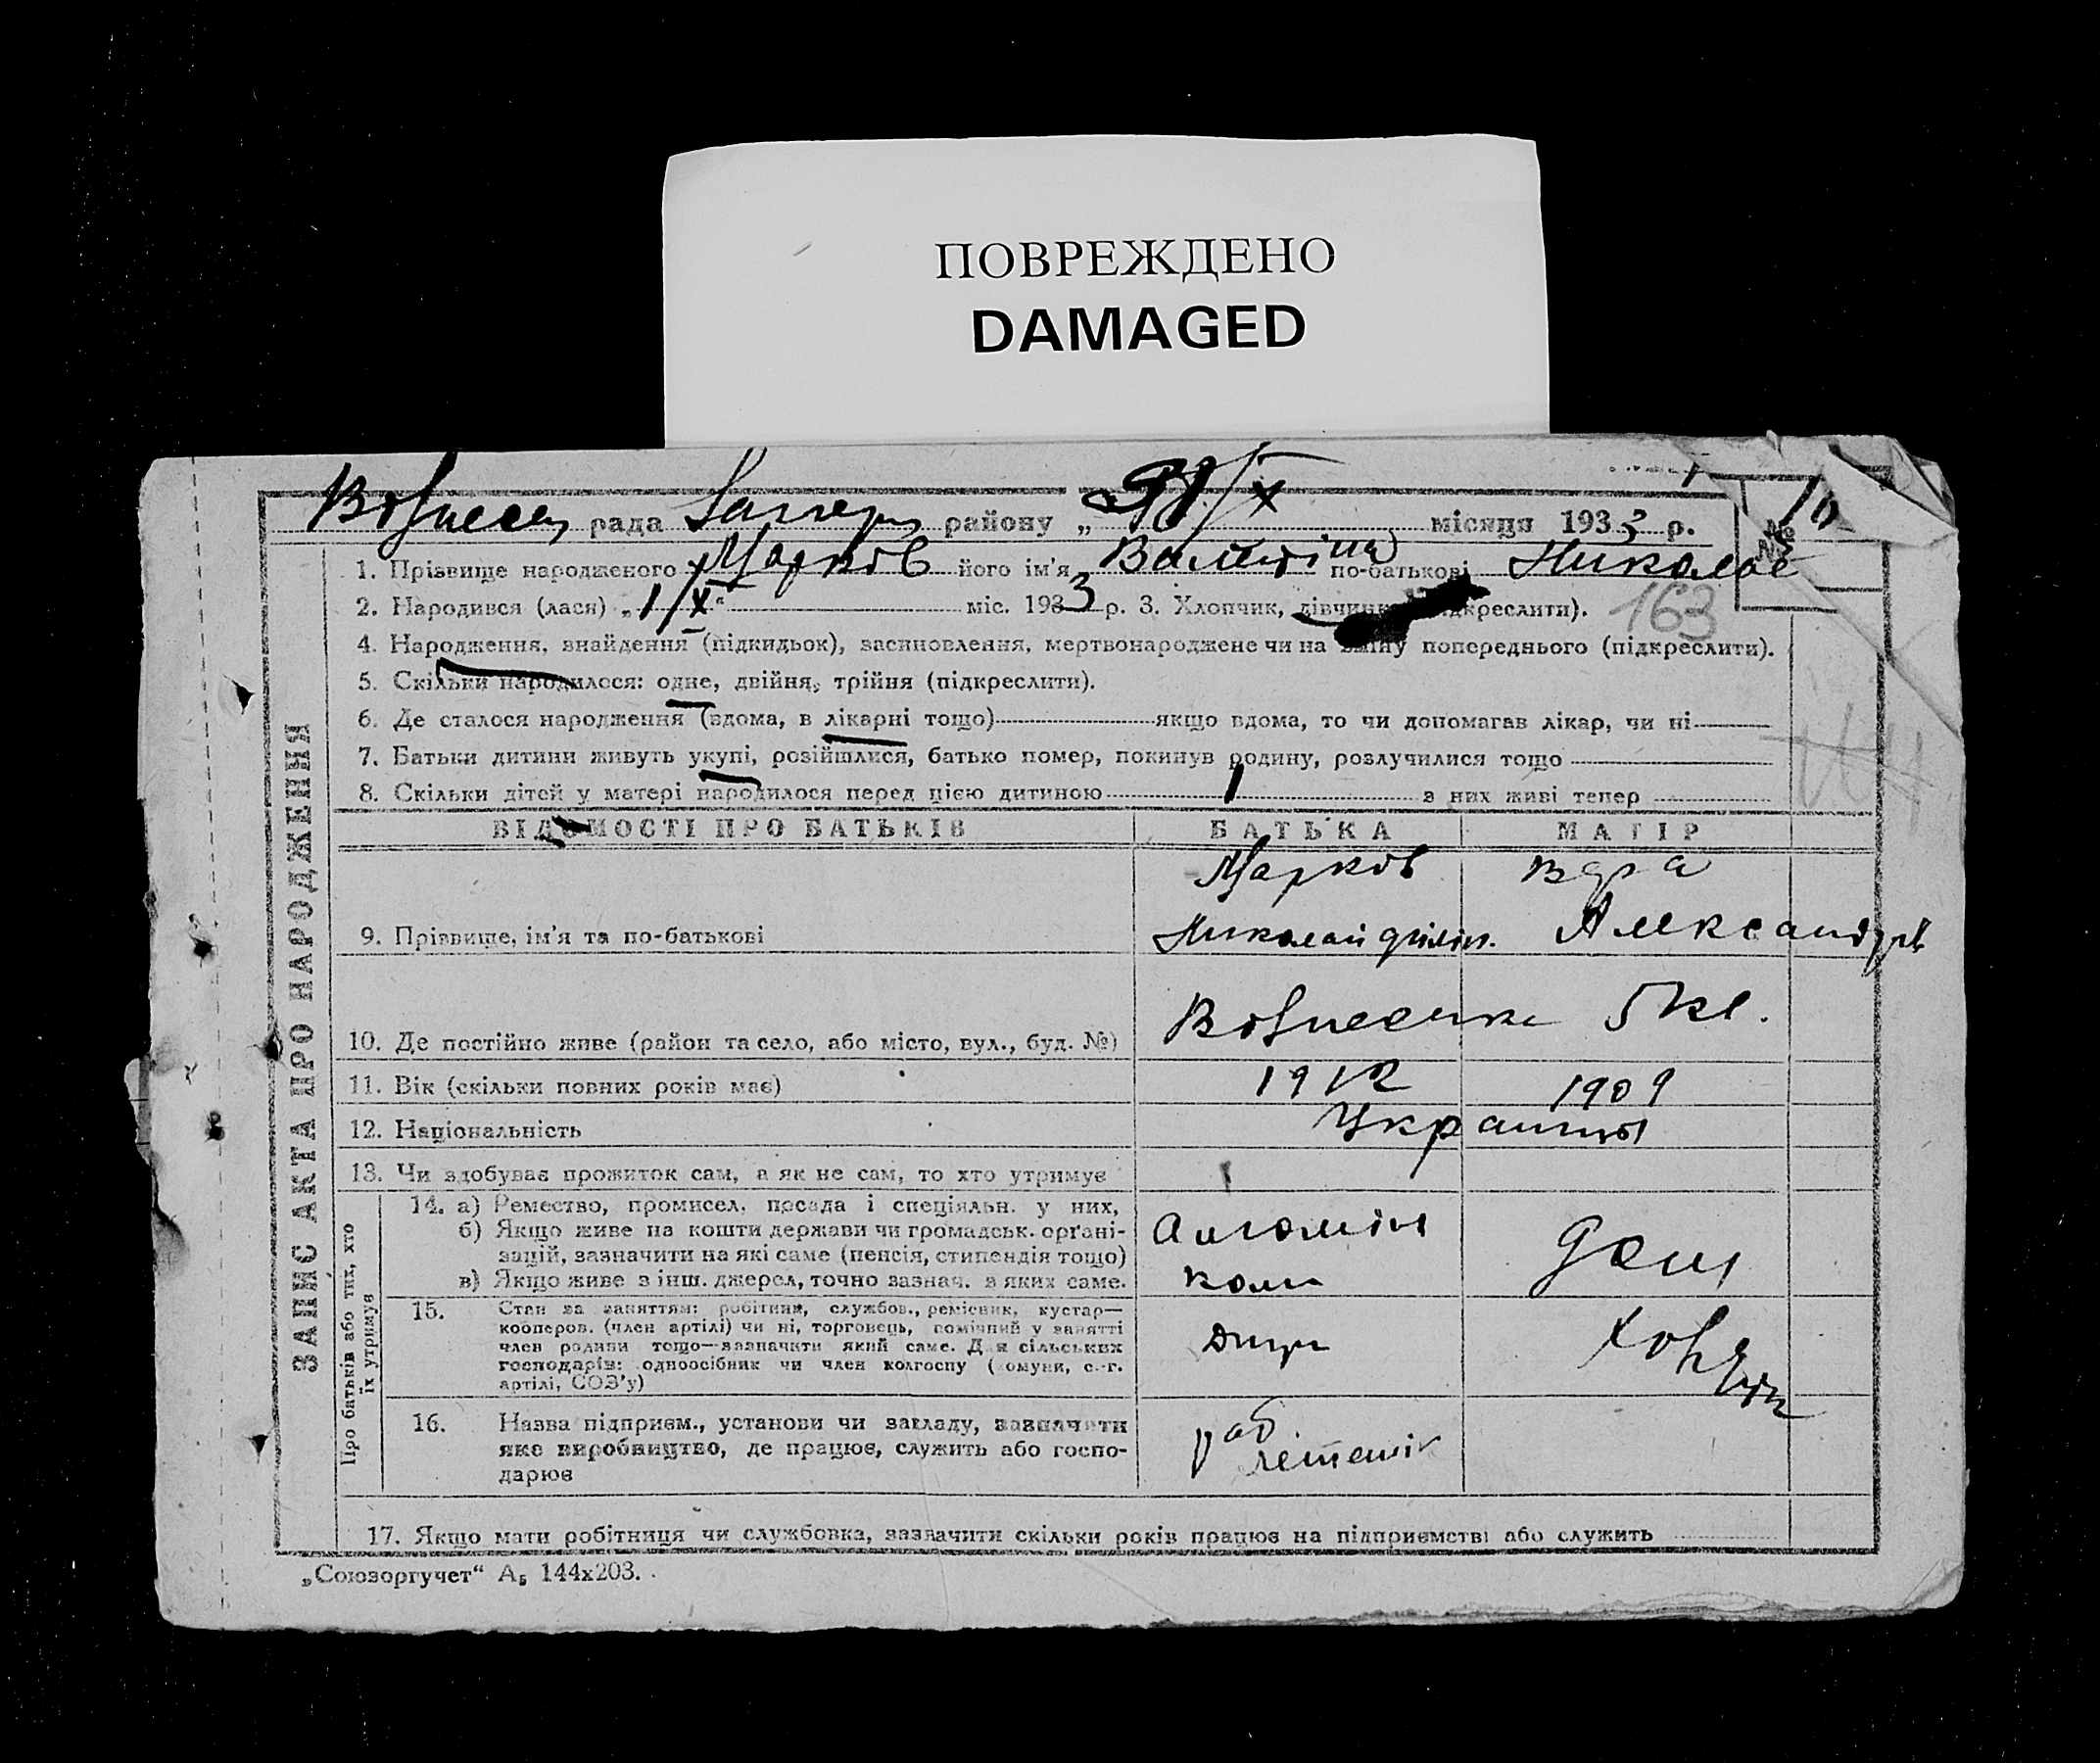 ПОВРЕЖДЕНО
DAMAGED
рада району „ X місяця 1933 р. №
1. Прізвище народженого Марков його ім'я Валентіна по-батькові Николае
2. Народився (лася) „1/X“ міс. 1933 р. 3. Хлопчик, дівчинка (підкреслити).
163
4. Народження, знайдення (підкидьок), засиновлення, мертвонароджене чи на зміну попереднього (підкреслити).
5. Скільки народилося: одне, двійня, трійня (підкреслити).
6. Де сталося народження (вдома, в лікарні тощо) якщо вдома, то чи допомагав лікар, чи ні
7. Батьки дитини живуть укупі, розійшлися, батько помер, покинув родину, розлучилися тощо
8. Скільки дітей у матері народилося перед цією дитиною 1 з них живі тепер
ЗАПИС АКТА ПРО НАРОДЖЕННЯ
ВІДОМОСТІ ПРО БАТЬКІВ БАТЬКА МАТІР
Марков Вера
9. Прізвище, ім'я та по-батькові Николай Александр
10. Де постійно живе (район та село, або місто, вул., буд. №)
11. Вік (скільки повних років має) 1912 1909
12. Національність Украинцы
13. Чи здобуває прожиток сам, а як не сам, то хто утримує
Про батьків або тих, хто їх утримує
14. а) Ремество, промисел, посада і спеціяльн. у них,
б) Якщо живе на кошти держави чи громадськ. орґані-
зацій, зазначити на які саме (пенсія, стипендія тощо)
в) Якщо живе з інш. джерел, точно зазнач. з яких саме.
Дом
15. Стан за заняттям: робітник, службов., ремісник, кустар—
кооперов. (член артілі) чи ні, торговець, помічний у занятті
член родини тощо—зазначити який саме. Для сільських
господарів: одноосібник чи член колгоспу (комуни, с.-г.
артілі, СОЗ'у)
16. Назва підприєм., установи чи закладу, зазначити
яке виробництво, де працює, служить або госпо-
дарює
17. Якщо мати робітниця чи службовка, зазначити скільки років працює на підприємстві або служить
„Союзоргучет“ А₅ 144х203.